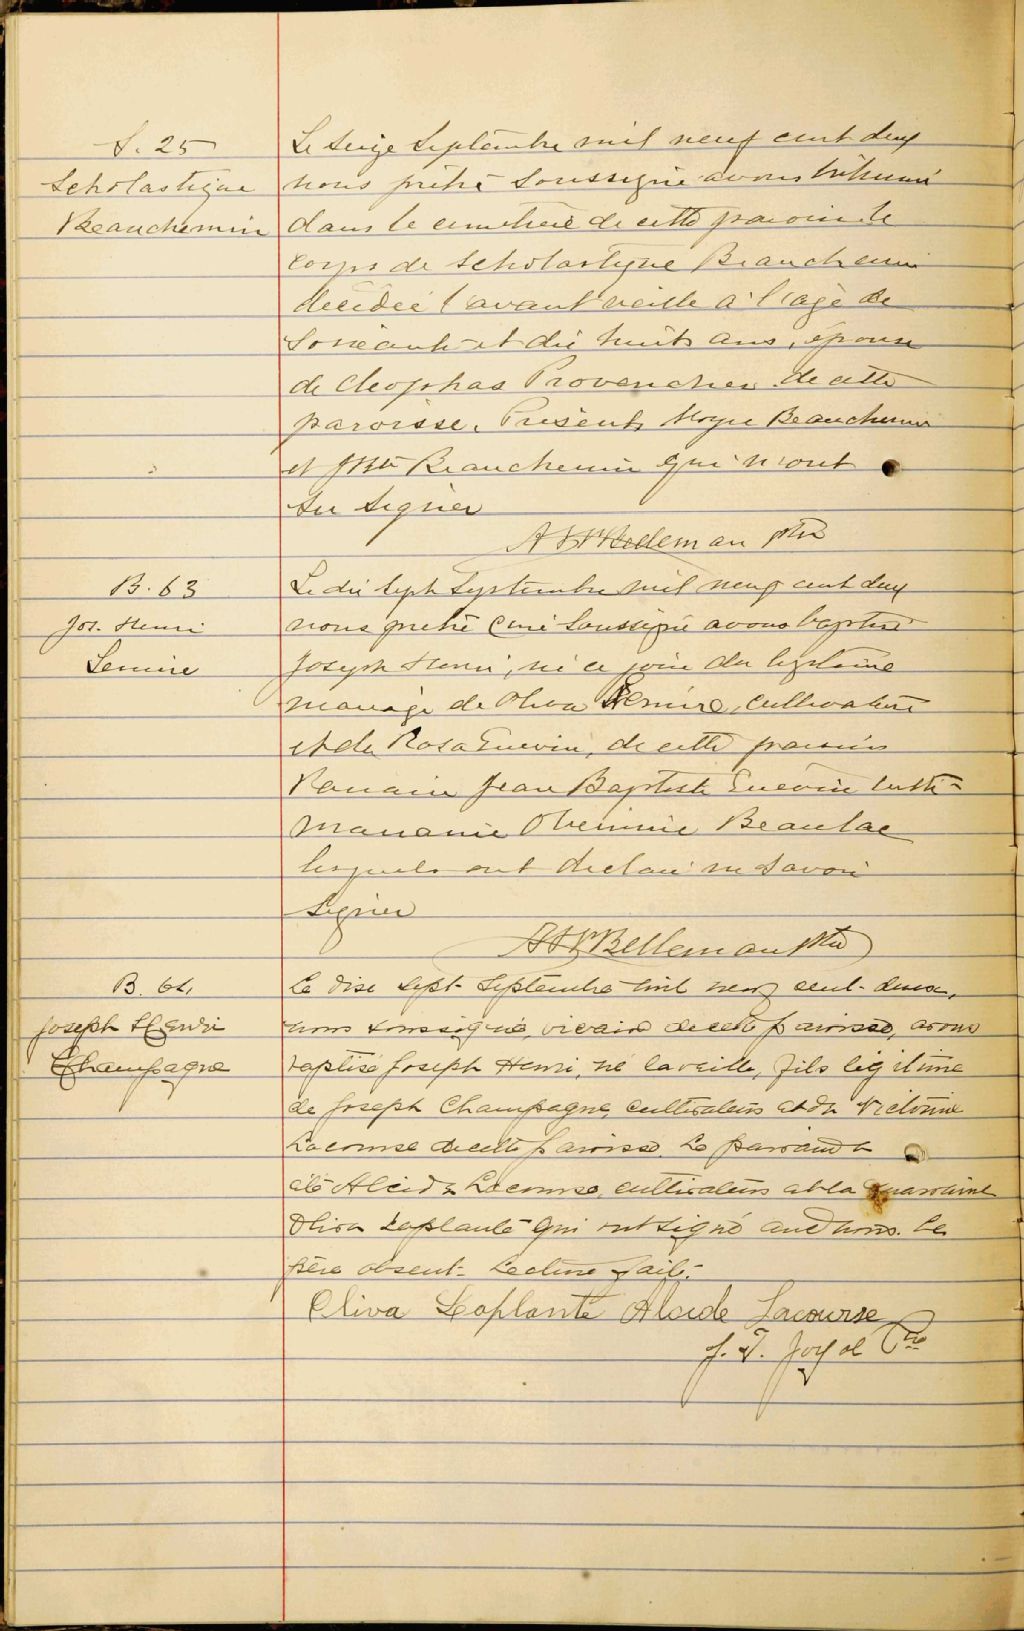 S. 25
Scholastique
Beauchemin
Le seize Septembre mil neuf cent deux
nous prêtre soussigné avons inhumé
dans le cimetière de cette paroisse le
corps de Scholastique Beauchemin
décédée l'avant veille à l'age de
soixante et dix huit ans, épouse
de Cleophas Provencher de cette
paroisse. Présents Beauchemin
et J Bte Beauchemin qui n'ont
su signer
Ptre
B. 63
Jos. Henri
Lemire
Le dix sept Septembre mil neuf cent deux
nous prêtre Curé soussigné avons baptisé
Joseph Henri, né ce jour du légitime
mariage de Oliva Lemire, cultivateur
et de Rosa Guevin, de cette paroisse
Parrain Jean Baptiste Guévin
Marraine Beaulac
lesquels ont déclaré ne savoir
signer
Bellemare Ptre
B. 64
Joseph Henri
Champagne
Le dix sept Septembre mil neuf cent-deux,
nous soussigné, vicaire de cette paroisse, avons
baptisé Joseph Henri, né la veille, fils légitime
de Joseph Champagne, cultivateur et de Victorine
Lacourse de cette paroisse. Le parrain a
été Alcide Lacourse, cultivateur et la marraine
Oliva Laplante qui ont signé avec nous. Le
père absent. Lecture faite.
Oliva Laplante Alcide Lacourse
J. T. Joyal Ptre